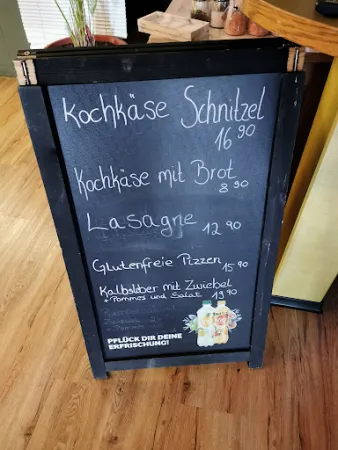 Kochkäse Schnitzel
16 90
Kochkäse mit Brot
8 90
Lasagne 12 90
Glutenfreie Pizzen 15 90
Kalbsleber mit Zwiebel
+ Pommes und Salat 19 90
PFLÜCK DIR DEINE
ERFRISCHUNG!